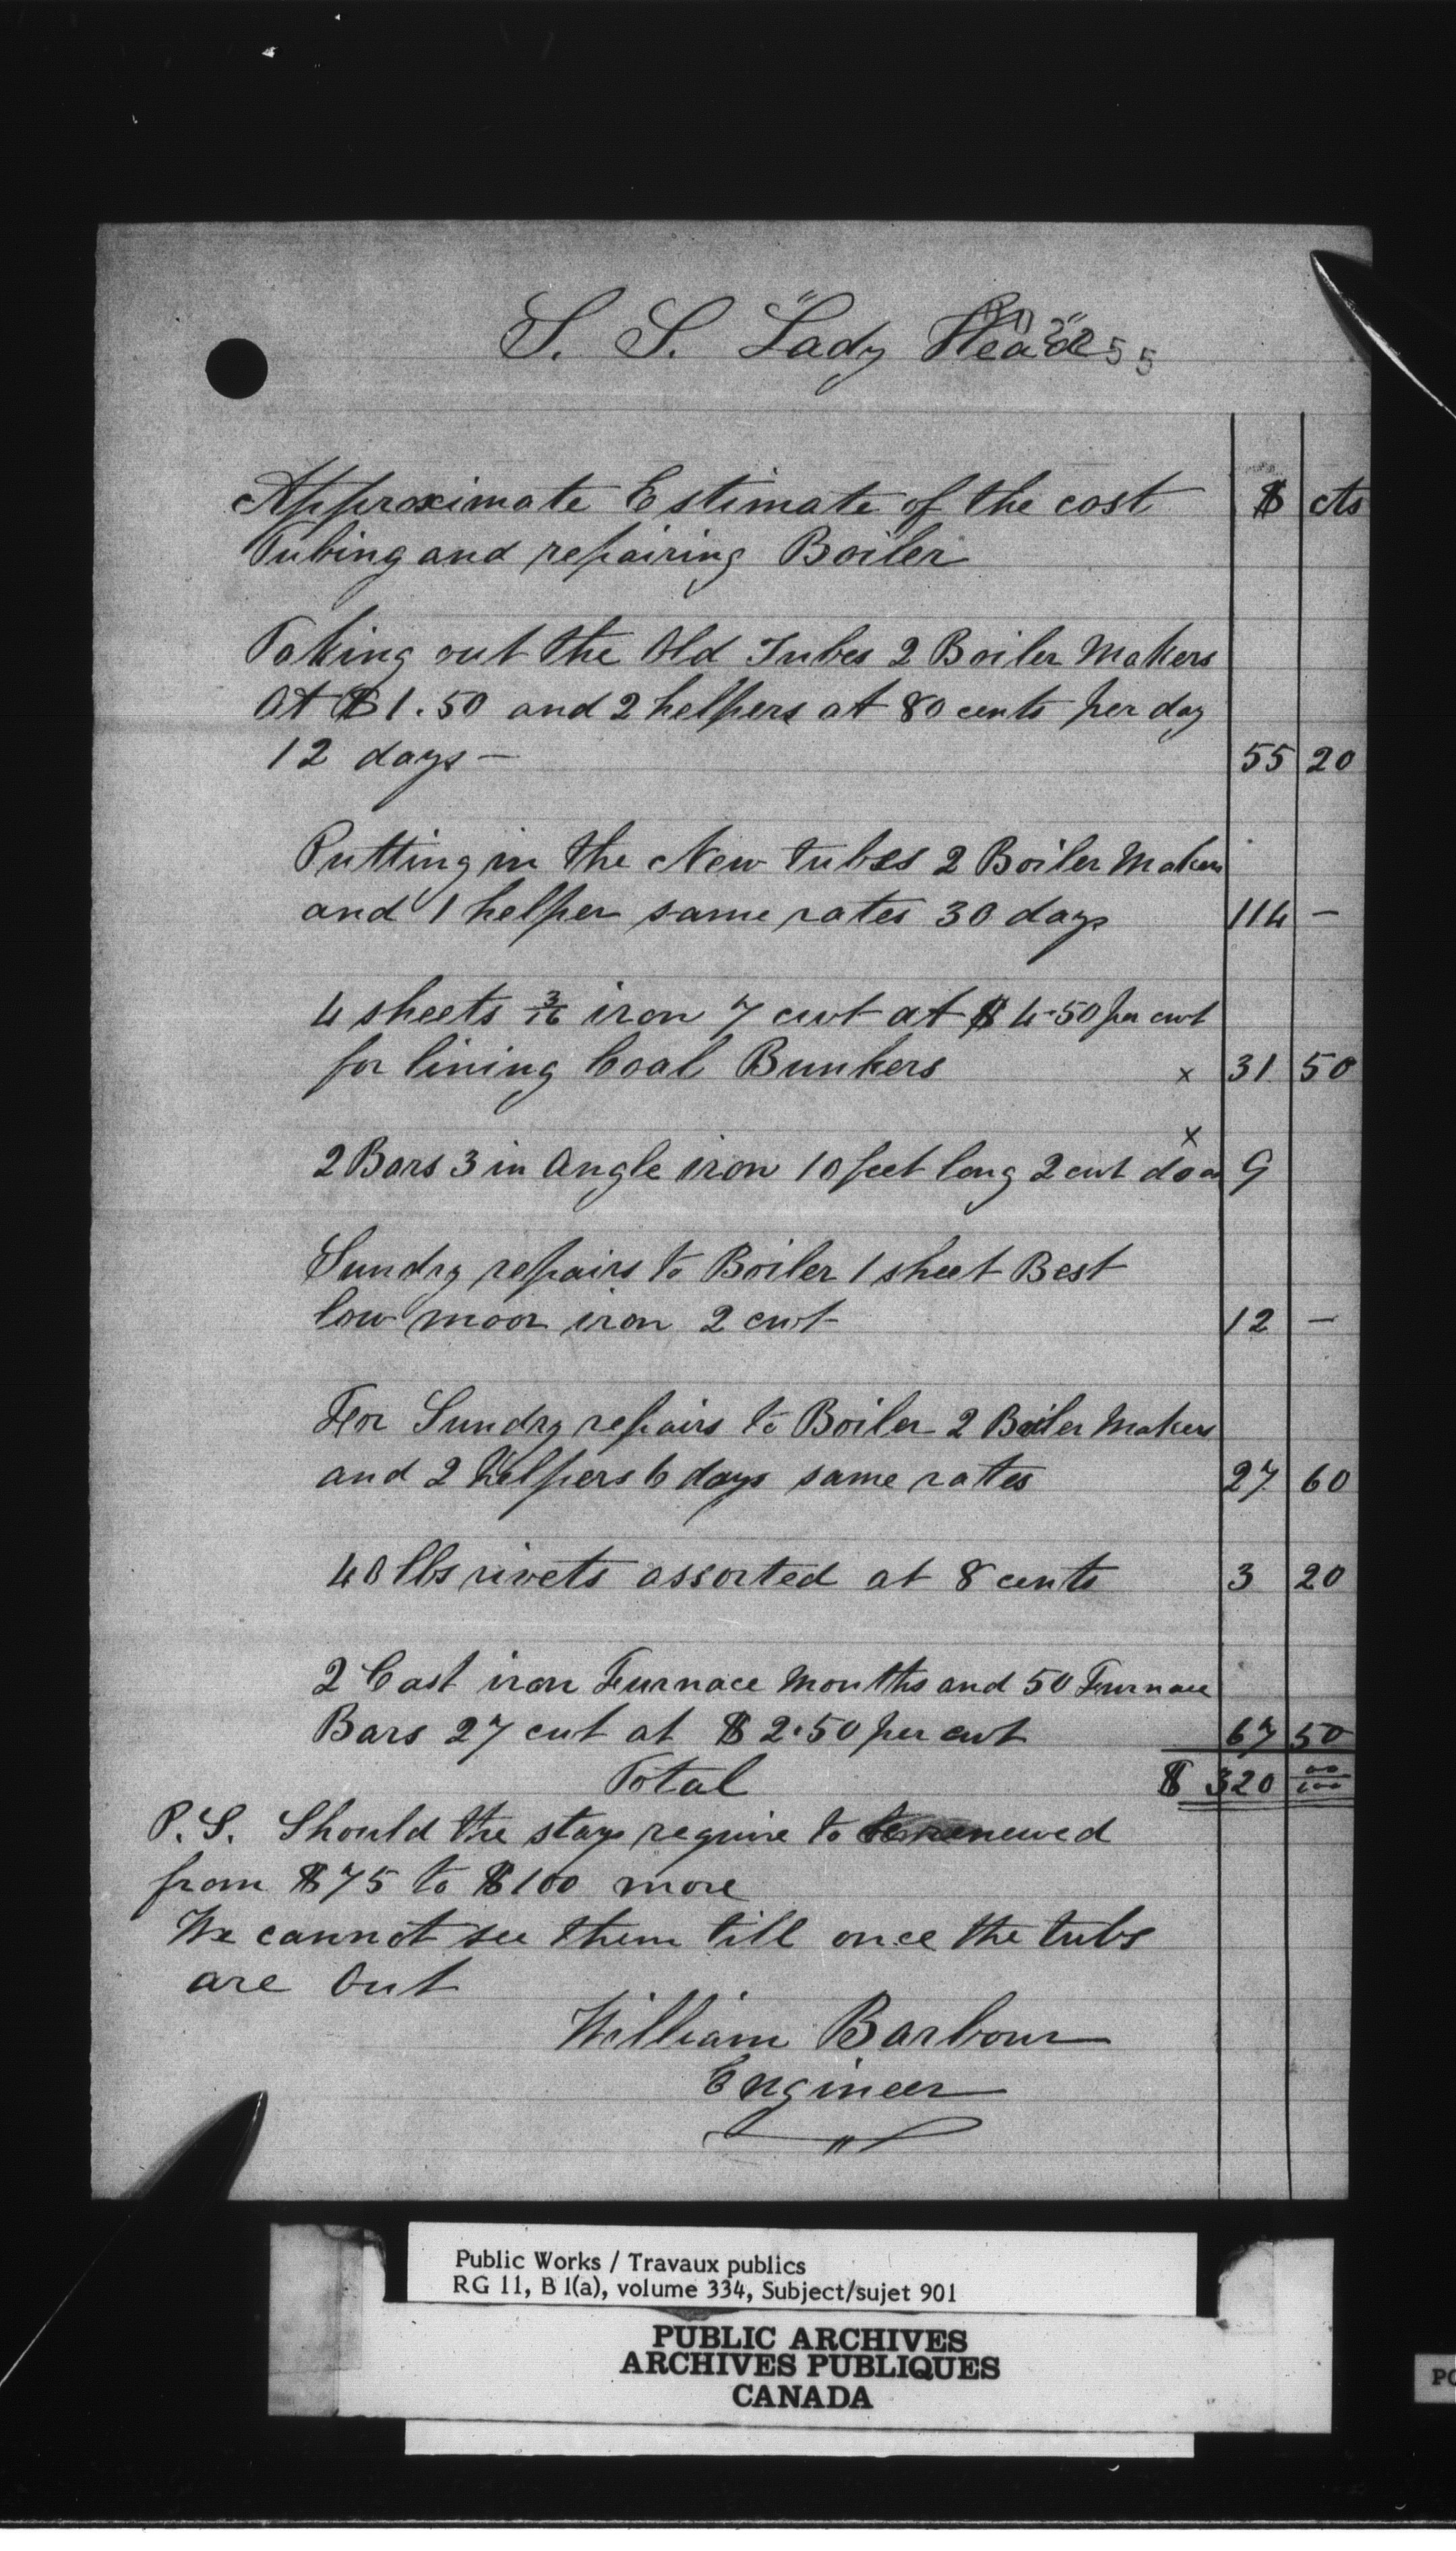 S. S. "Lady Head"
55
Approximate Estimate of the cost $ cts
Tubing and repairing Boiler
Taking out the Old Tubes 2 Boiler Makers
at $1.50 and 2 helpers at 80 cents per day
12 days - 55 20
Putting in the New tubes 2 Boiler Makers
and 1 helper same rates 30 days 114 -
4 sheets 3/16 iron 7 cwt at $4.50 per cwt
for lining Coal Bunkers x 31 50
x
2 Bars 3 in Angle iron 10 feet long 2 cwt do 9
Sundry repairs to Boiler 1 sheet Best
low moor iron 2 cwt 12 -
For Sundry repairs to Boiler 2 Boiler Makers
and 2 helpers 6 days same rates 27 60
40 lbs rivets assorted at 8 cents 3 20
2 Cast iron Furnace Mouths and 50 Furnace
Bars 27 cwt at $2.50 per cwt 67 50
Total $ 320 00/100
P.S. Should the stays require to be renewed
from $75 to $100 more
We cannot see them till once the tubs
are Out
William Barbour
Engineer
Public Works / Travaux publics
RG 11, B 1(a), volume 334, Subject/sujet 901
PUBLIC ARCHIVES
ARCHIVES PUBLIQUES
CANADA